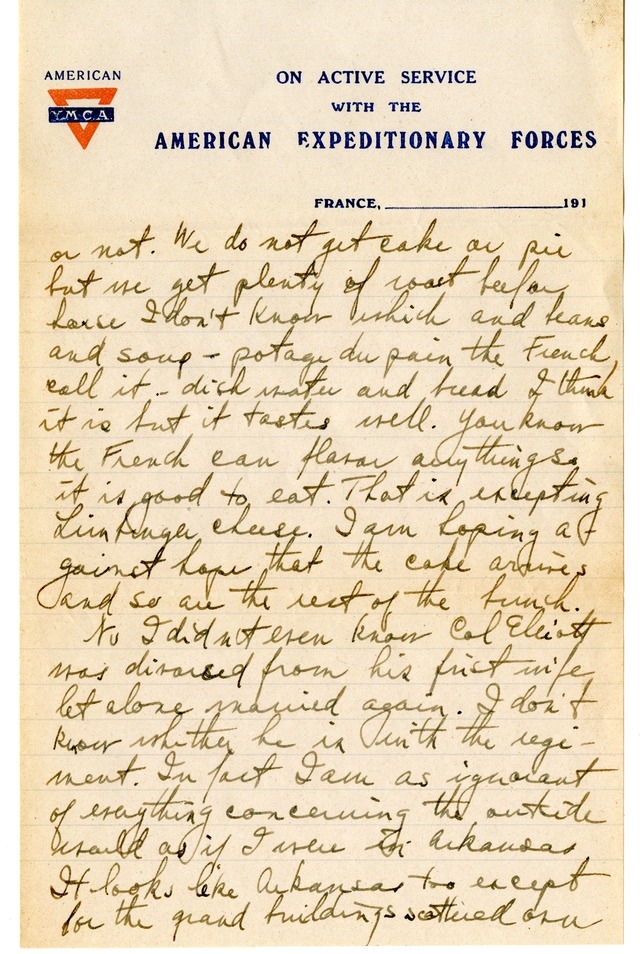 AMERICAN
Y.M.C.A.
ON ACTIVE SERVICE
WITH THE
AMERICAN EXPEDITIONARY FORCES
FRANCE, 191
or not. We do not get cake or pie
but we get plenty of roast beef or
horse I don't know which and beans
and soup - potage du pain the French
call it - dish water and bread I think
it is but it tastes well. You know
the French can flavor anything so
it is good to eat. That is, excepting
cheese. I am hoping a-
gainst hope that the cake arrives
and so are the rest of the bunch.
No I didn't even know Col Elliott
was divorced from his first wife,
let alone married again. I don't
know whether he is with the regi-
ment. In fact I am as ignorant
of everything concerning the outside
world as if I were in Arkansas
It looks like Arkansas too except
for the grand buildings scattered over